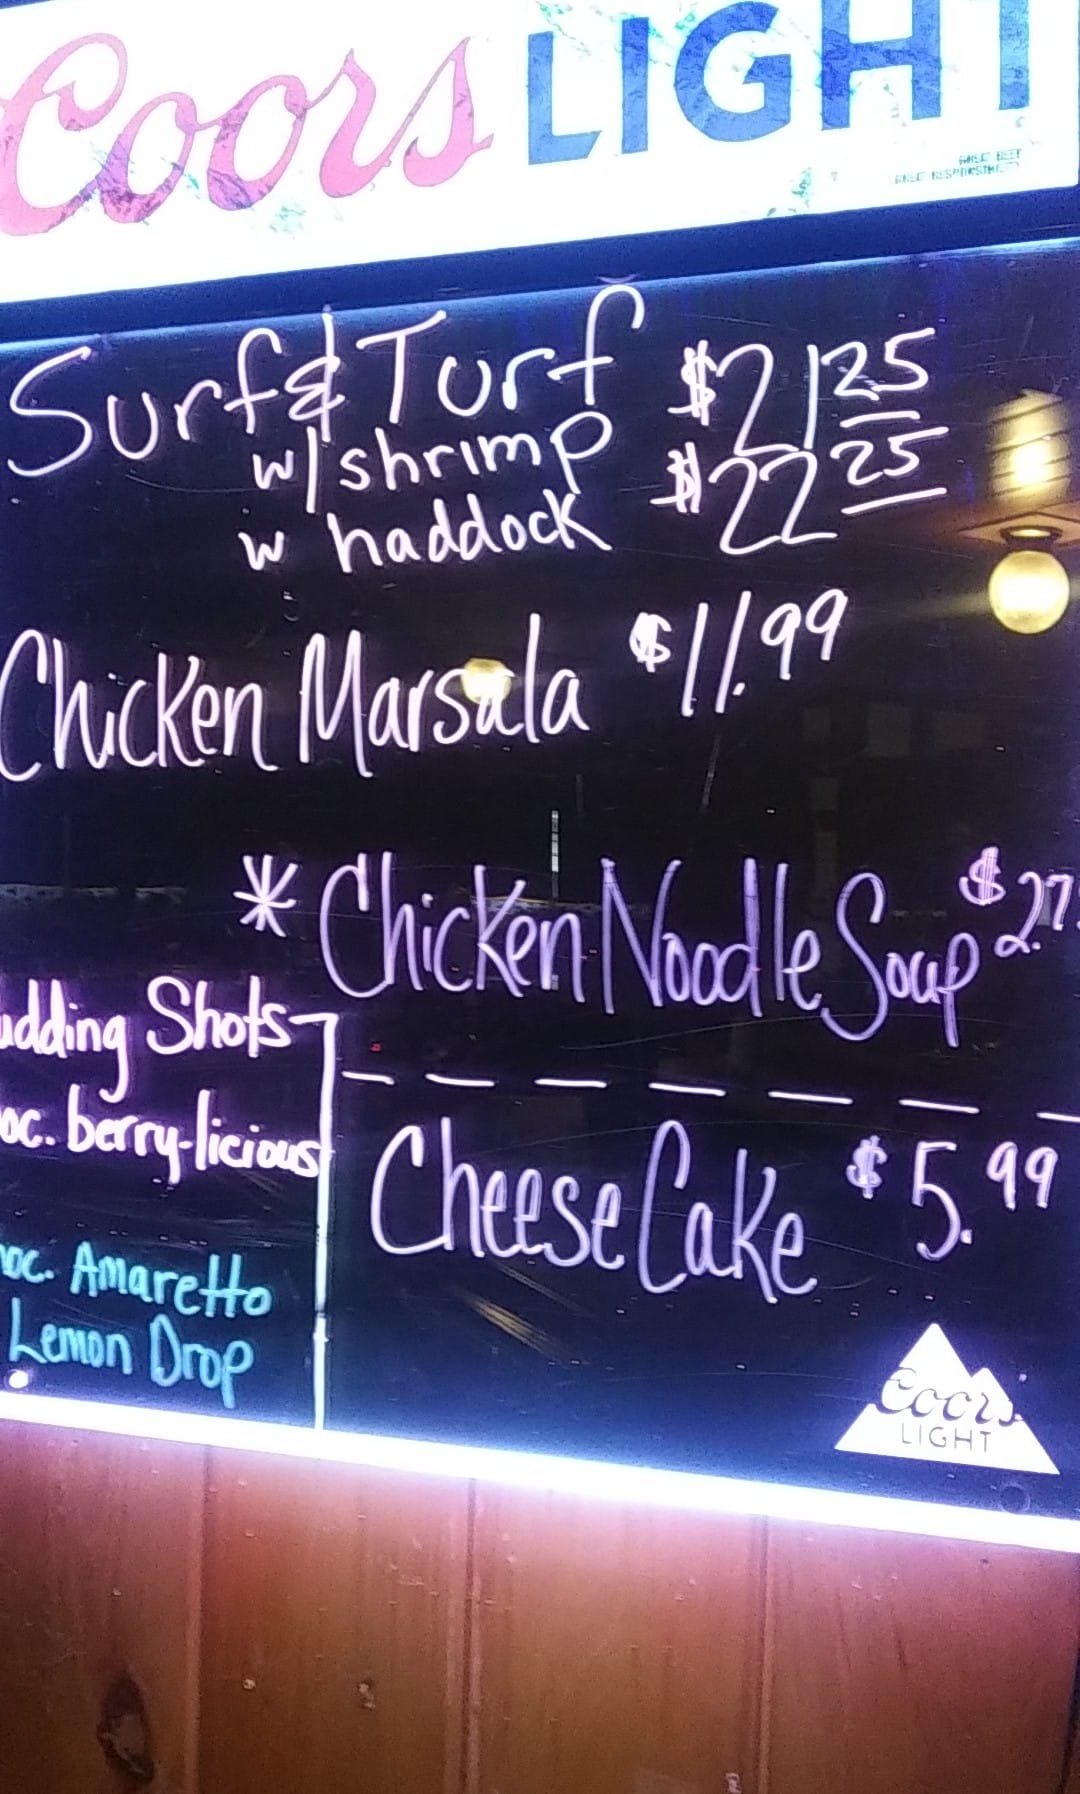 Coors LIGHT
GREAT BEER
GREAT RESPONSIBILITY
Surf & Turf $21 25
w/ shrimp
w haddock $22 25
Chicken Marsala $11.99
* Chicken Noodle Soup $2.7
udding Shots
oc. berry-licious
oc. Amaretto
Lemon Drop
Cheese Cake $5.99
Coors
LIGHT